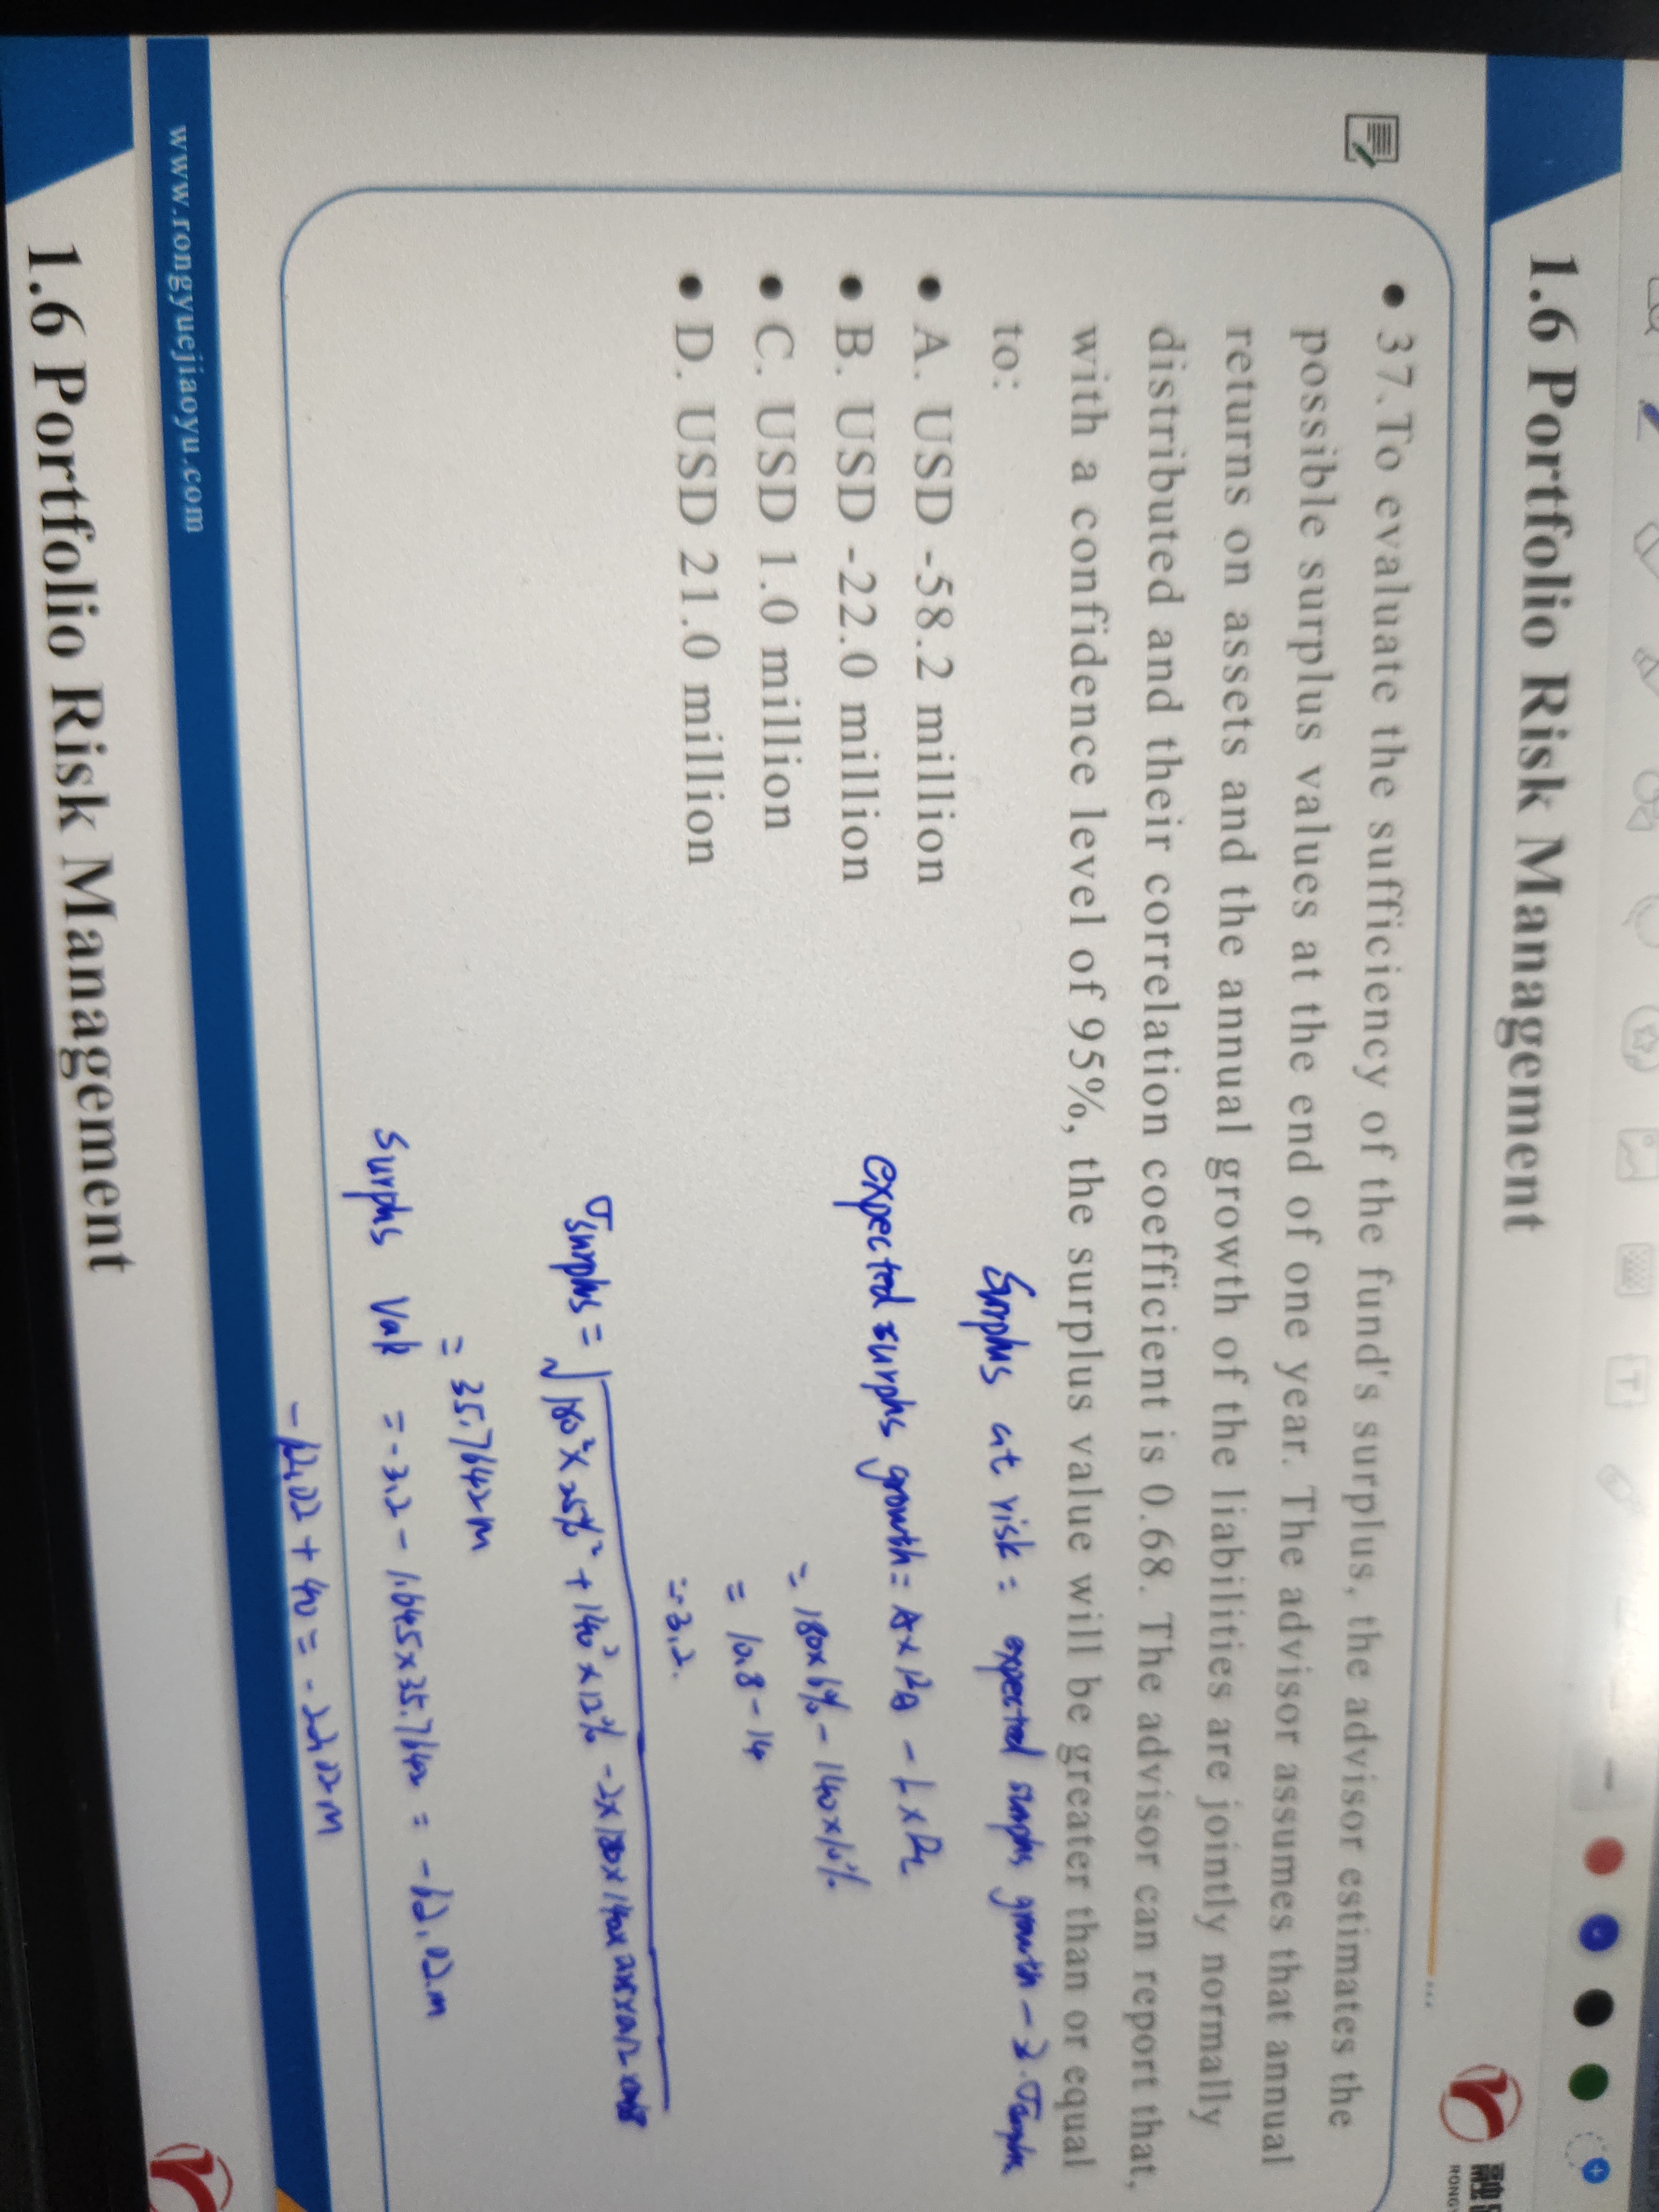 1.6 Portfolio Risk Management
融
RONG
• 37.To evaluate the sufficiency of the fund's surplus, the advisor estimates the
possible surplus values at the end of one year. The advisor assumes that annual
returns on assets and the annual growth of the liabilities are jointly normally
distributed and their correlation coefficient is 0.68. The advisor can report that,
with a confidence level of 95%, the surplus value will be greater than or equal
to:
• A. USD -58.2 million
• B. USD -22.0 million
• C. USD 1.0 million
• D. USD 21.0 million
Surplus at risk = expected surplus growth - z·σsurplus
expected surplus growth = A×RA - L×RL
= 180×6% - 140×10%
= 10.8 - 14
= -3.2.
σsurplus = √180²×25%²+140²×12%²-2×180×140×0.25×0.12×0.68
= 35.7642m
Surplus VaR = -3.2 - 1.645×35.7642 = -62.02m
-62.02 + 40 = -22.02m
www.rongyuejiaoyu.com
1.6 Portfolio Risk Management